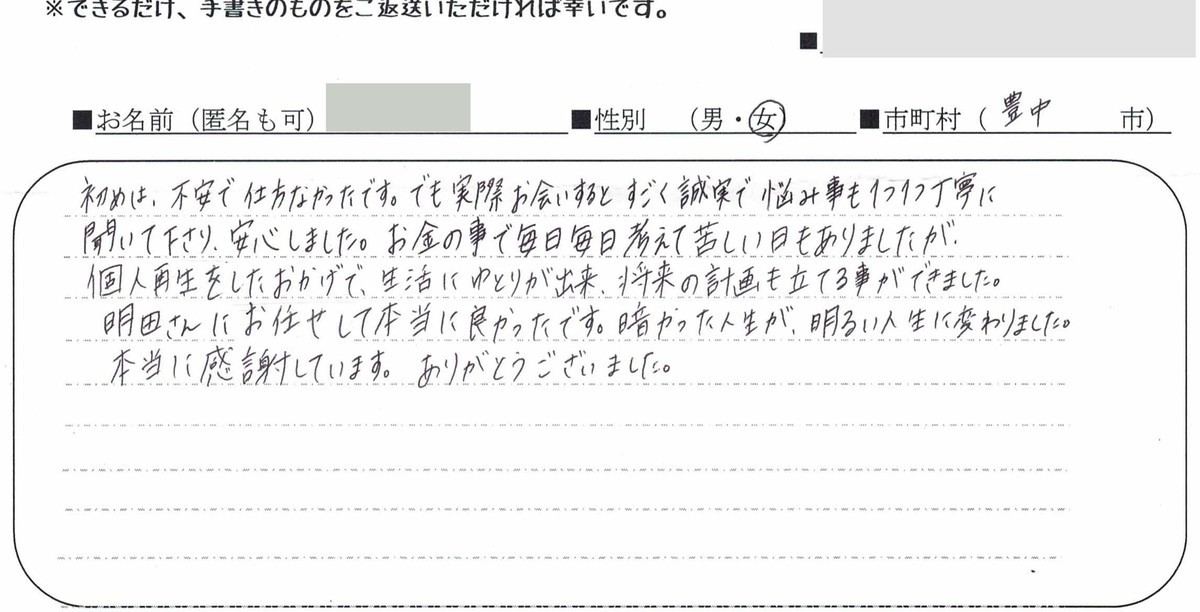 ※できるだけ、手書きのものをご返送いただければ幸いです。
■
■お名前（匿名も可） ■性別 （男・女） ■市町村（ 豊中 市）
初めは、不安で仕方なかったです。でも実際お会いするとすごく誠実で悩み事も1つ1つ丁寧に
聞いて下さり、安心しました。お金の事で毎日毎日考えて苦しい日もありましたが、
個人再生をしたおかげで、生活にゆとりが出来、将来の計画も立てる事ができました。
明田さんにお任せして本当に良かったです。暗かった人生が、明るい人生に変わりました。
本当に感謝しています。ありがとうございました。